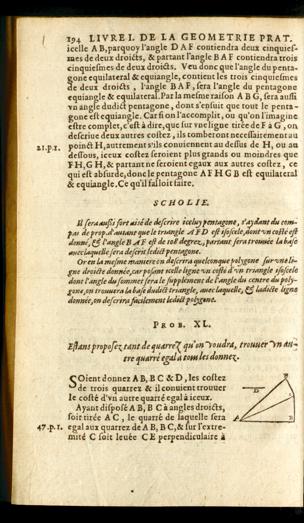 194 LIVRE I. DE LA GEOMETRIE PRAT.
icelle AB, parquoy l'angle DAF contiendra deux cinquies-
mes de deux droicts, & partant l'angle BAF contiendra trois
cinquiesmes de deux droicts. Veu donc que l'angle du penta-
gone equilateral & equiangle, contient les trois cinquiesmes
de deux droicts, l'angle BAF, sera l'angle du pentagone
equiangle & equilateral. Par la mesme raison ABG, sera aussi
vn angle dudict pentagone, dont s'ensuit que tout le penta-
gone est equiangle. Car si on l'accomplit, ou qu'on l'imagine
estre complet, c'est à dire, que sur
descriue deux autres costez, ils tomberont necessairement au
21.p.1. poinct H, autrement s'ils conuiennent au dessus de H, ou au
dessous, iceux costez seroient plus grands ou moindres que
FH, GH, & partant ne seroient egaux aux autres costez, ce
qui est absurde, donc le pentagone AFHGB est equilateral
& equiangle. Ce qu'il falloit faire.
SCHOLIE.
Il sera aussi fort aisé de descrire iceluy pentagone, s'aydant du com-
pas de prop. d'autant que le triangle AFD est isoscele, dont vn costé est
donné, & l'angle BAF est de 108 degrez, partant sera trouuée la base
auec laquelle sera descrit ledict pentagone.
Or en la mesme maniere on descrira quelconque polygone sur vne li-
gne droicte donnée, car posant icelle ligne vn costé d'vn triangle isoscele
dont l'angle du sommet sera le supplement de l'angle du centre du poly-
gone, on trouuera la base dudict triangle, auec laquelle, & ladicte ligne
donnée, on descrira facilement ledict polygone.
PROB. XL.
Estans proposez tant de quarrez qu'on voudra, trouuer vn au-
tre quarré egal a tous les donnez.
SOient donnez AB, BC & D, les costez
de trois quarrez & il conuient trouuer
le costé d'vn autre quarré egal à iceux.
Ayant disposé AB, BC à angles droicts,
soit tirée AC, le quarré de laquelle sera
47.p.1. egal aux quarrez de AB, BC, & sur l'extre-
mité C soit leuée CE perpendiculaire à